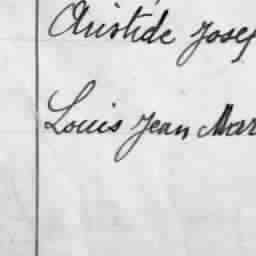 Aristide Josep
Louis Jean Mar